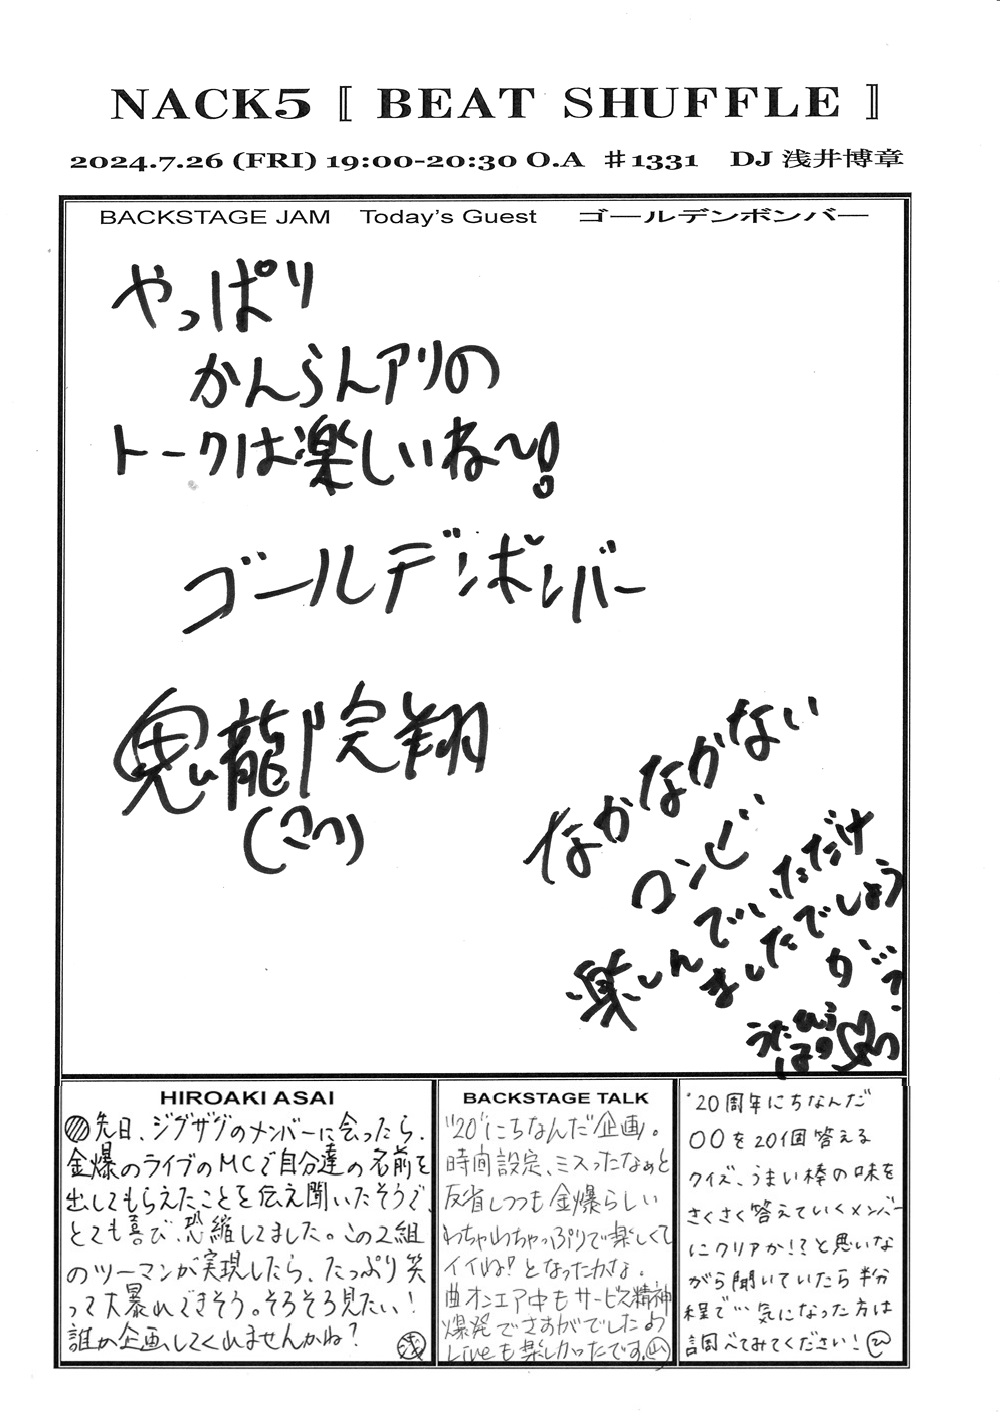 NACK5 〚 BEAT SHUFFLE 〛
2024.7.26 (FRI) 19:00-20:30 O.A ♯1331 DJ 浅井博章
BACKSTAGE JAM Today's Guest ゴールデンボンバー
やっぱり
かんらんアリの
トークは楽しいね〜!
ゴールデンボンバー
鬼龍院翔
なかなかない
コンビ
でいただけ
楽しんで
ましたでしょう
が…?
うたひろば
HIROAKI ASAI
先日、ジグザグのメンバーに会ったら、
金爆のライブのMCで自分達の名前を
出してもらえたことを伝え聞いたそうで、
とても喜び、恐縮してました。この2組
のツーマンが実現したら、たっぷり笑
って大暴れできそう。そろそろ見たい!
誰か企画してくれませんかね? 浅
BACKSTAGE TALK
"20"にちなんだ企画。
時間設定、ミスったなぁと
反省しつつも金爆らしい
わちゃわちゃっぷりで楽しくて
イイね!となったかな。
曲オンエア中もサービス精神
爆発でさすがでしたよ
Liveも楽しかったです。山
"20周年にちなんだ
〇〇を20個答える
クイズ、うまい棒の味を
さくさく答えていくメンバー
にクリアか!?と思いな
がら聞いていたら半分
程で…気になった方は
調べてみてください!